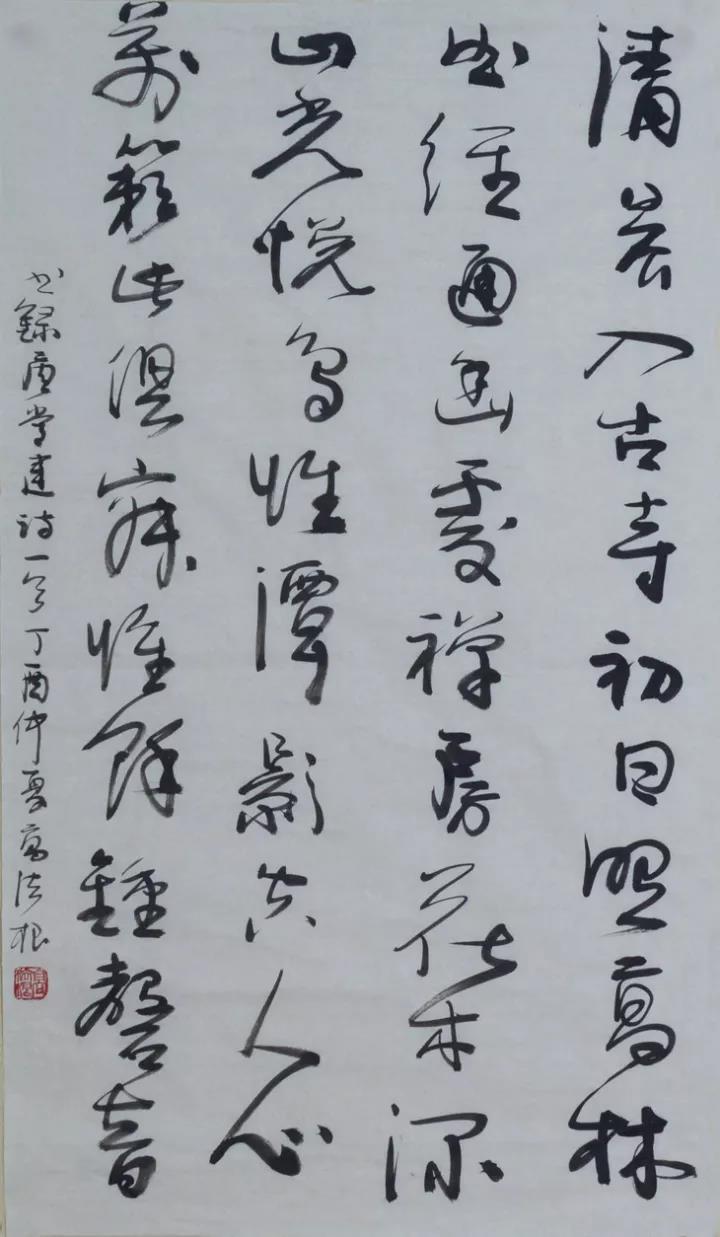 清晨入古寺初日照高林
曲径通幽處禅房花木深
山光悦鸟性潭影空人心
萬籁此俱寂惟餘鍾磬音
书録唐常建诗一首丁酉仲夏高法根